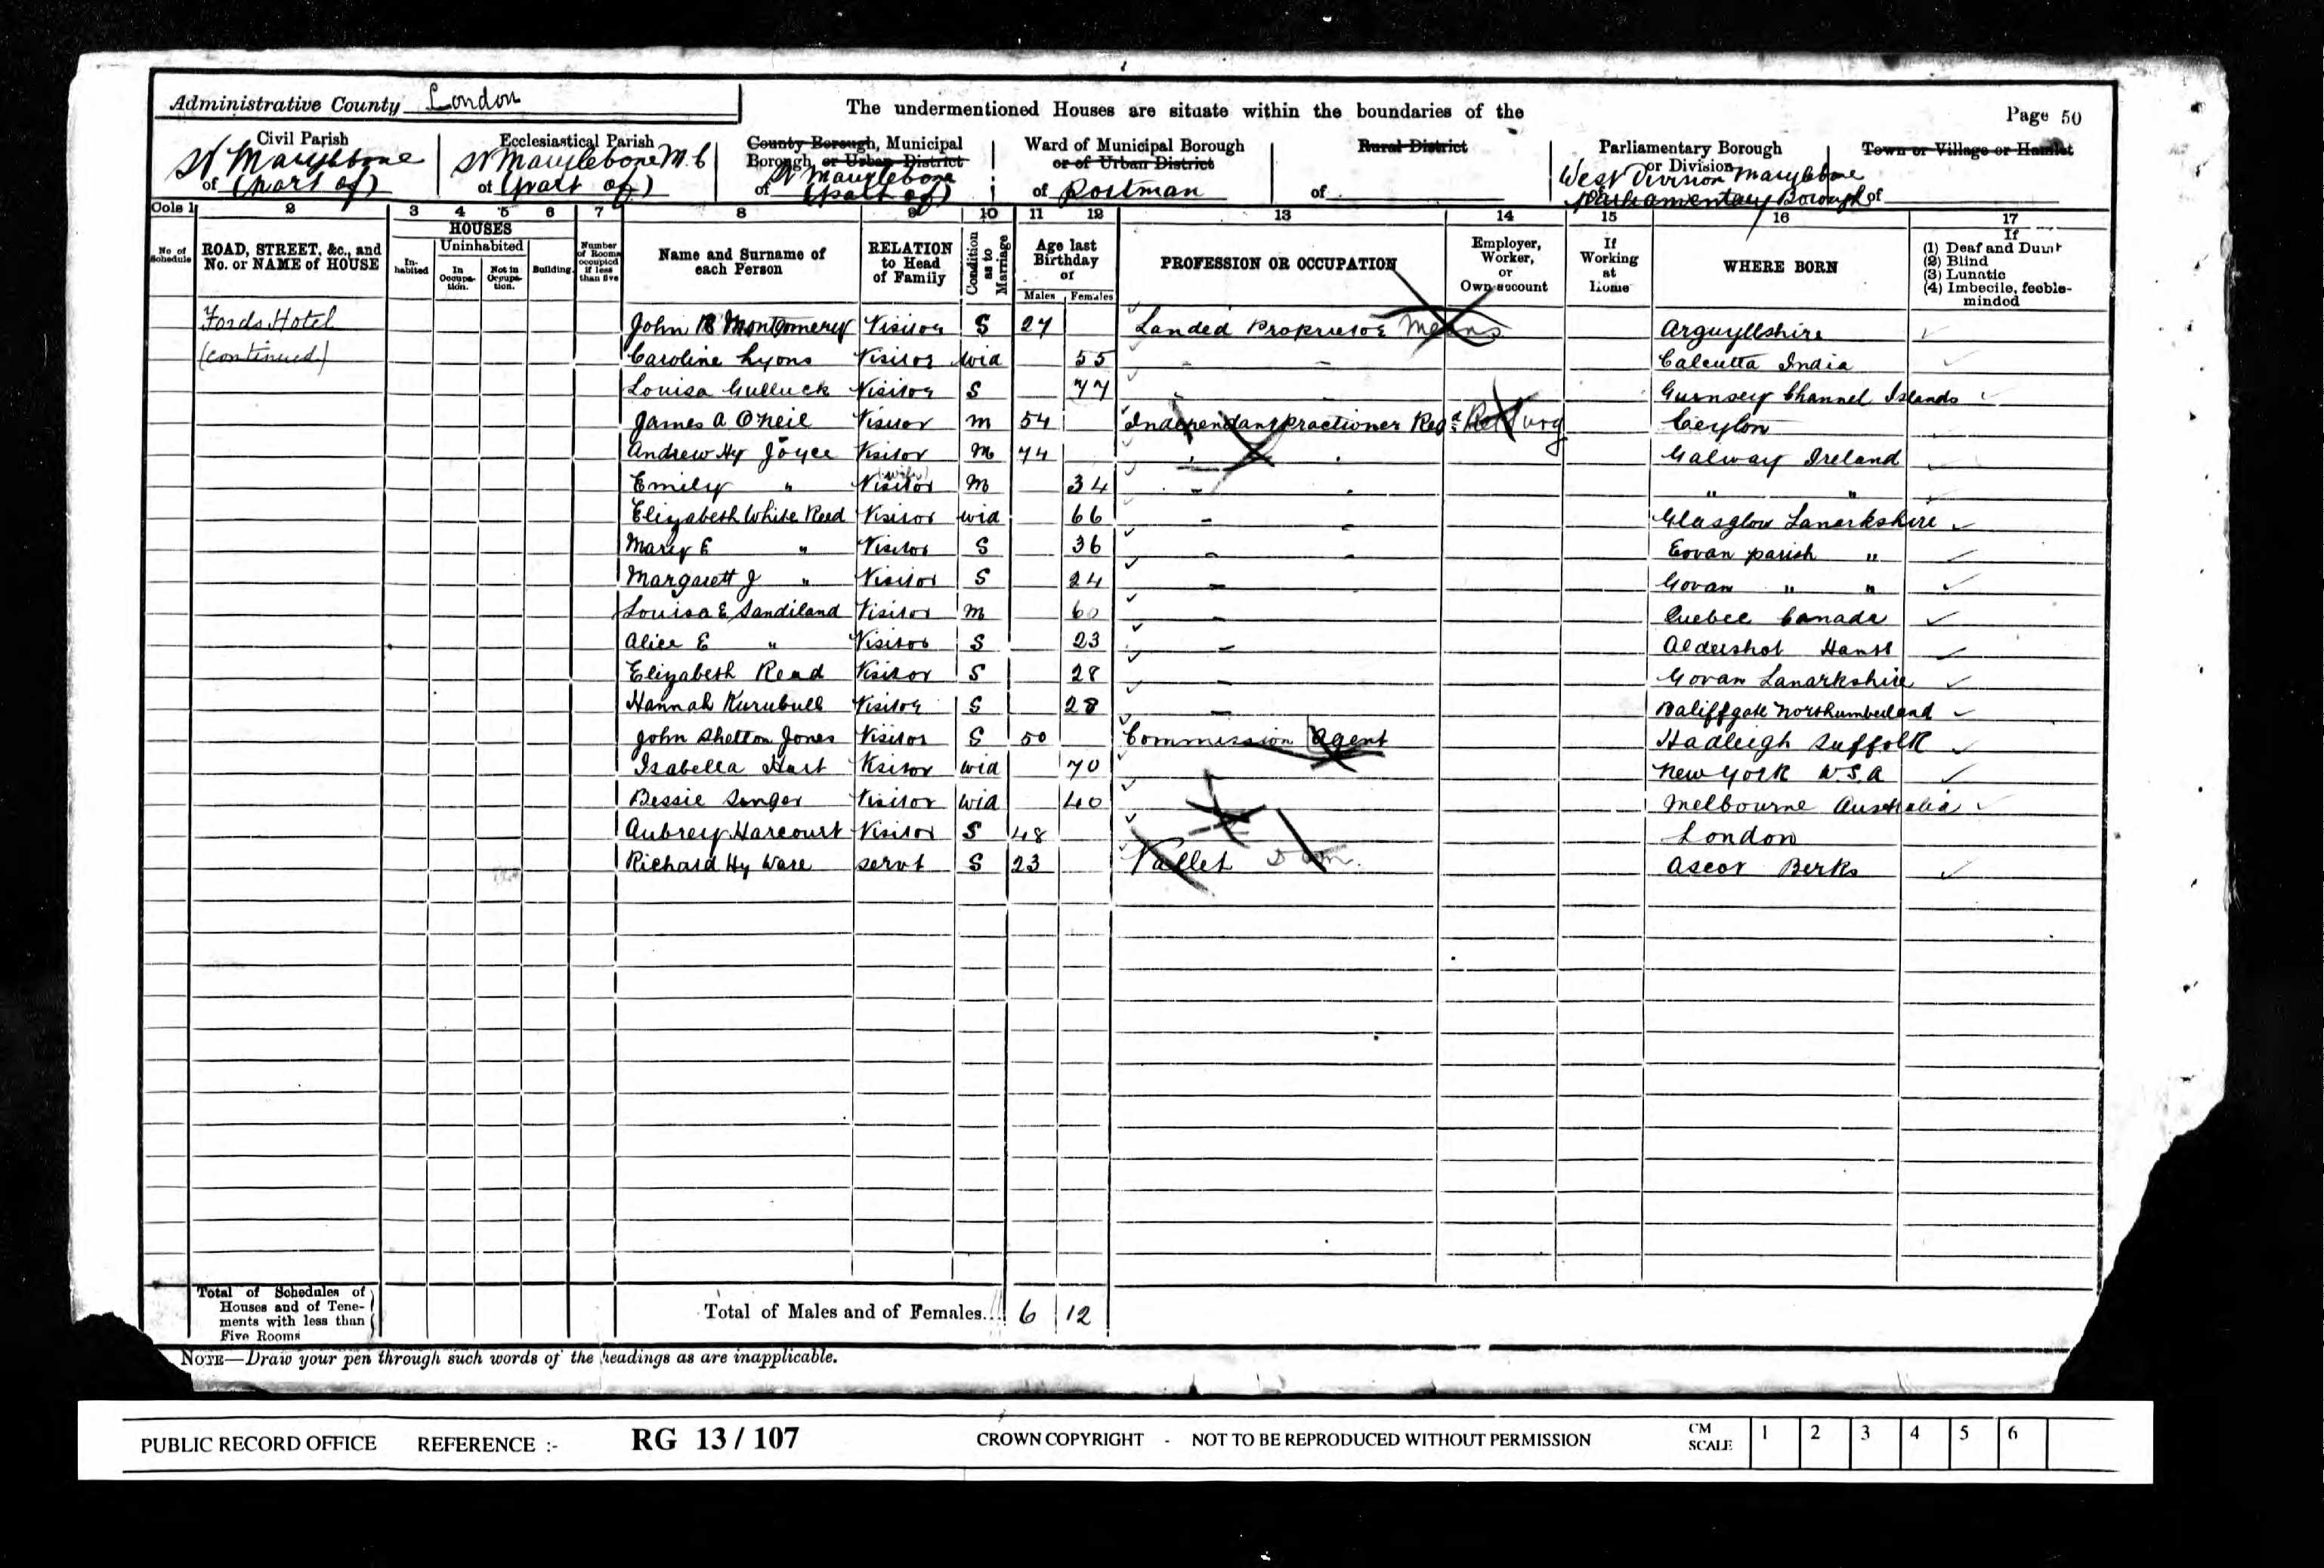 Administrative County London
The undermentioned Houses are situate within the boundaries of the
Page 50
Civil Parish
St Marylebone
of (part of)
Ecclesiastical Parish
St Marylebone M.C
of (part of)
County Borough, Municipal
Borough, or Urban District
St Marylebone
of (part of)
Ward of Municipal Borough
or of Urban District
of Portman
Rural District
of
Parliamentary Borough
or Division
West Division Marylebone
Parliamentary Borough of
Town or Village or Hamlet
of
Cols 1 2 3 4 5 6 7 8 9 10 11 12 13 14 15 16 17
No. of Schedule
ROAD, STREET, &c., and
No. or NAME of HOUSE
HOUSES
In-habited
Uninhabited
In Occupa-tion.
Not in Occupa-tion.
Building.
Number of Rooms occupied if less than five
Name and Surname of
each Person
RELATION
to Head
of Family
Condition as to Marriage
Age last
Birthday
of
Males Females
PROFESSION OR OCCUPATION
Employer,
Worker,
or
Own account
If
Working
at
Home
WHERE BORN
If
(1) Deaf and Dumb
(2) Blind
(3) Lunatic
(4) Imbecile, feeble-
minded
Fords Hotel John B Montgomery Visitor S 27 Landed Proprietor Means Arguyllshire
(continued) Caroline Lyons Visitor wid 55 - - Calcutta India
Louisa Gulluck Visitor S 77 - - Gurnsey Channel Islands
James A O'Neil Visitor m 54 Independant Practioner Regd Ceylon
Andrew Hy Joyce Visitor M 74 Galway Ireland
Emily " Visitor (wife) M 34 - - " "
Elizabeth White Reed Visitor wid 66 - - Glasglow Lanarkshire
Mary E " Visitor S 36 - - Govan parish "
Margarett J " Visitor S 24 - Govan " "
Louisa E Sandiland Visitor m 60 - Quebec Canada
Alice E " Visitor S 23 - Aldershot Hants
Elizabeth Read Visitor S 28 - Govan Lanarkshire
Hannah Visitor S 28 - Baliffgate Northumberland
John Shelton Jones Visitor S 50 Commission Agent Hadleigh Suffolk
Isabella Hart Visitor wid 70 New York U.S.A
Bessie Visitor wid 40 Melbourne Australia
Aubrey Harcourt Visitor S 48 London
Richard Hy Ware servt S 23 Vallet Dom. Ascot Berks
Total of Schedules of
Houses and of Tene-
ments with less than
Five Rooms
Total of Males and of Females... 6 12
NOTE—Draw your pen through such words of the headings as are inapplicable.
PUBLIC RECORD OFFICE REFERENCE :- RG 13 / 107 CROWN COPYRIGHT - NOT TO BE REPRODUCED WITHOUT PERMISSION CM SCALE 1 2 3 4 5 6